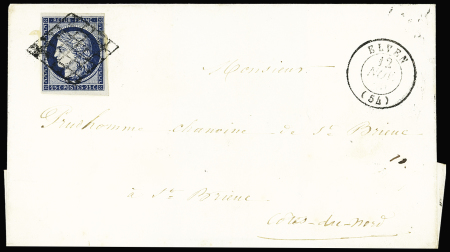 REPUB. FRANC.
25 C POSTES 25 C
ELVEN
12
(54)
Monsieur
Prudhomme chanoine de St Brieuc
à St Brieuc
Côtes-du-Nord